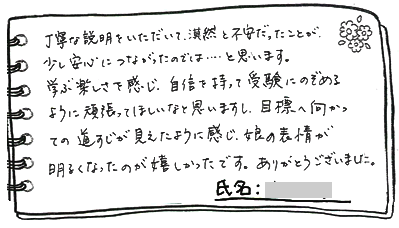 丁寧な説明をいただいて、漠然と不安だったことが、
少し安心につながったのでは…と思います。
学ぶ楽しさを感じ、自信を持って受験にのぞめる
ように頑張ってほしいなと思いますし、目標へ向かっ
ての道すじが見えたように感じ、娘の表情が
明るくなったのが嬉しかったです。ありがとうございました。
氏名: